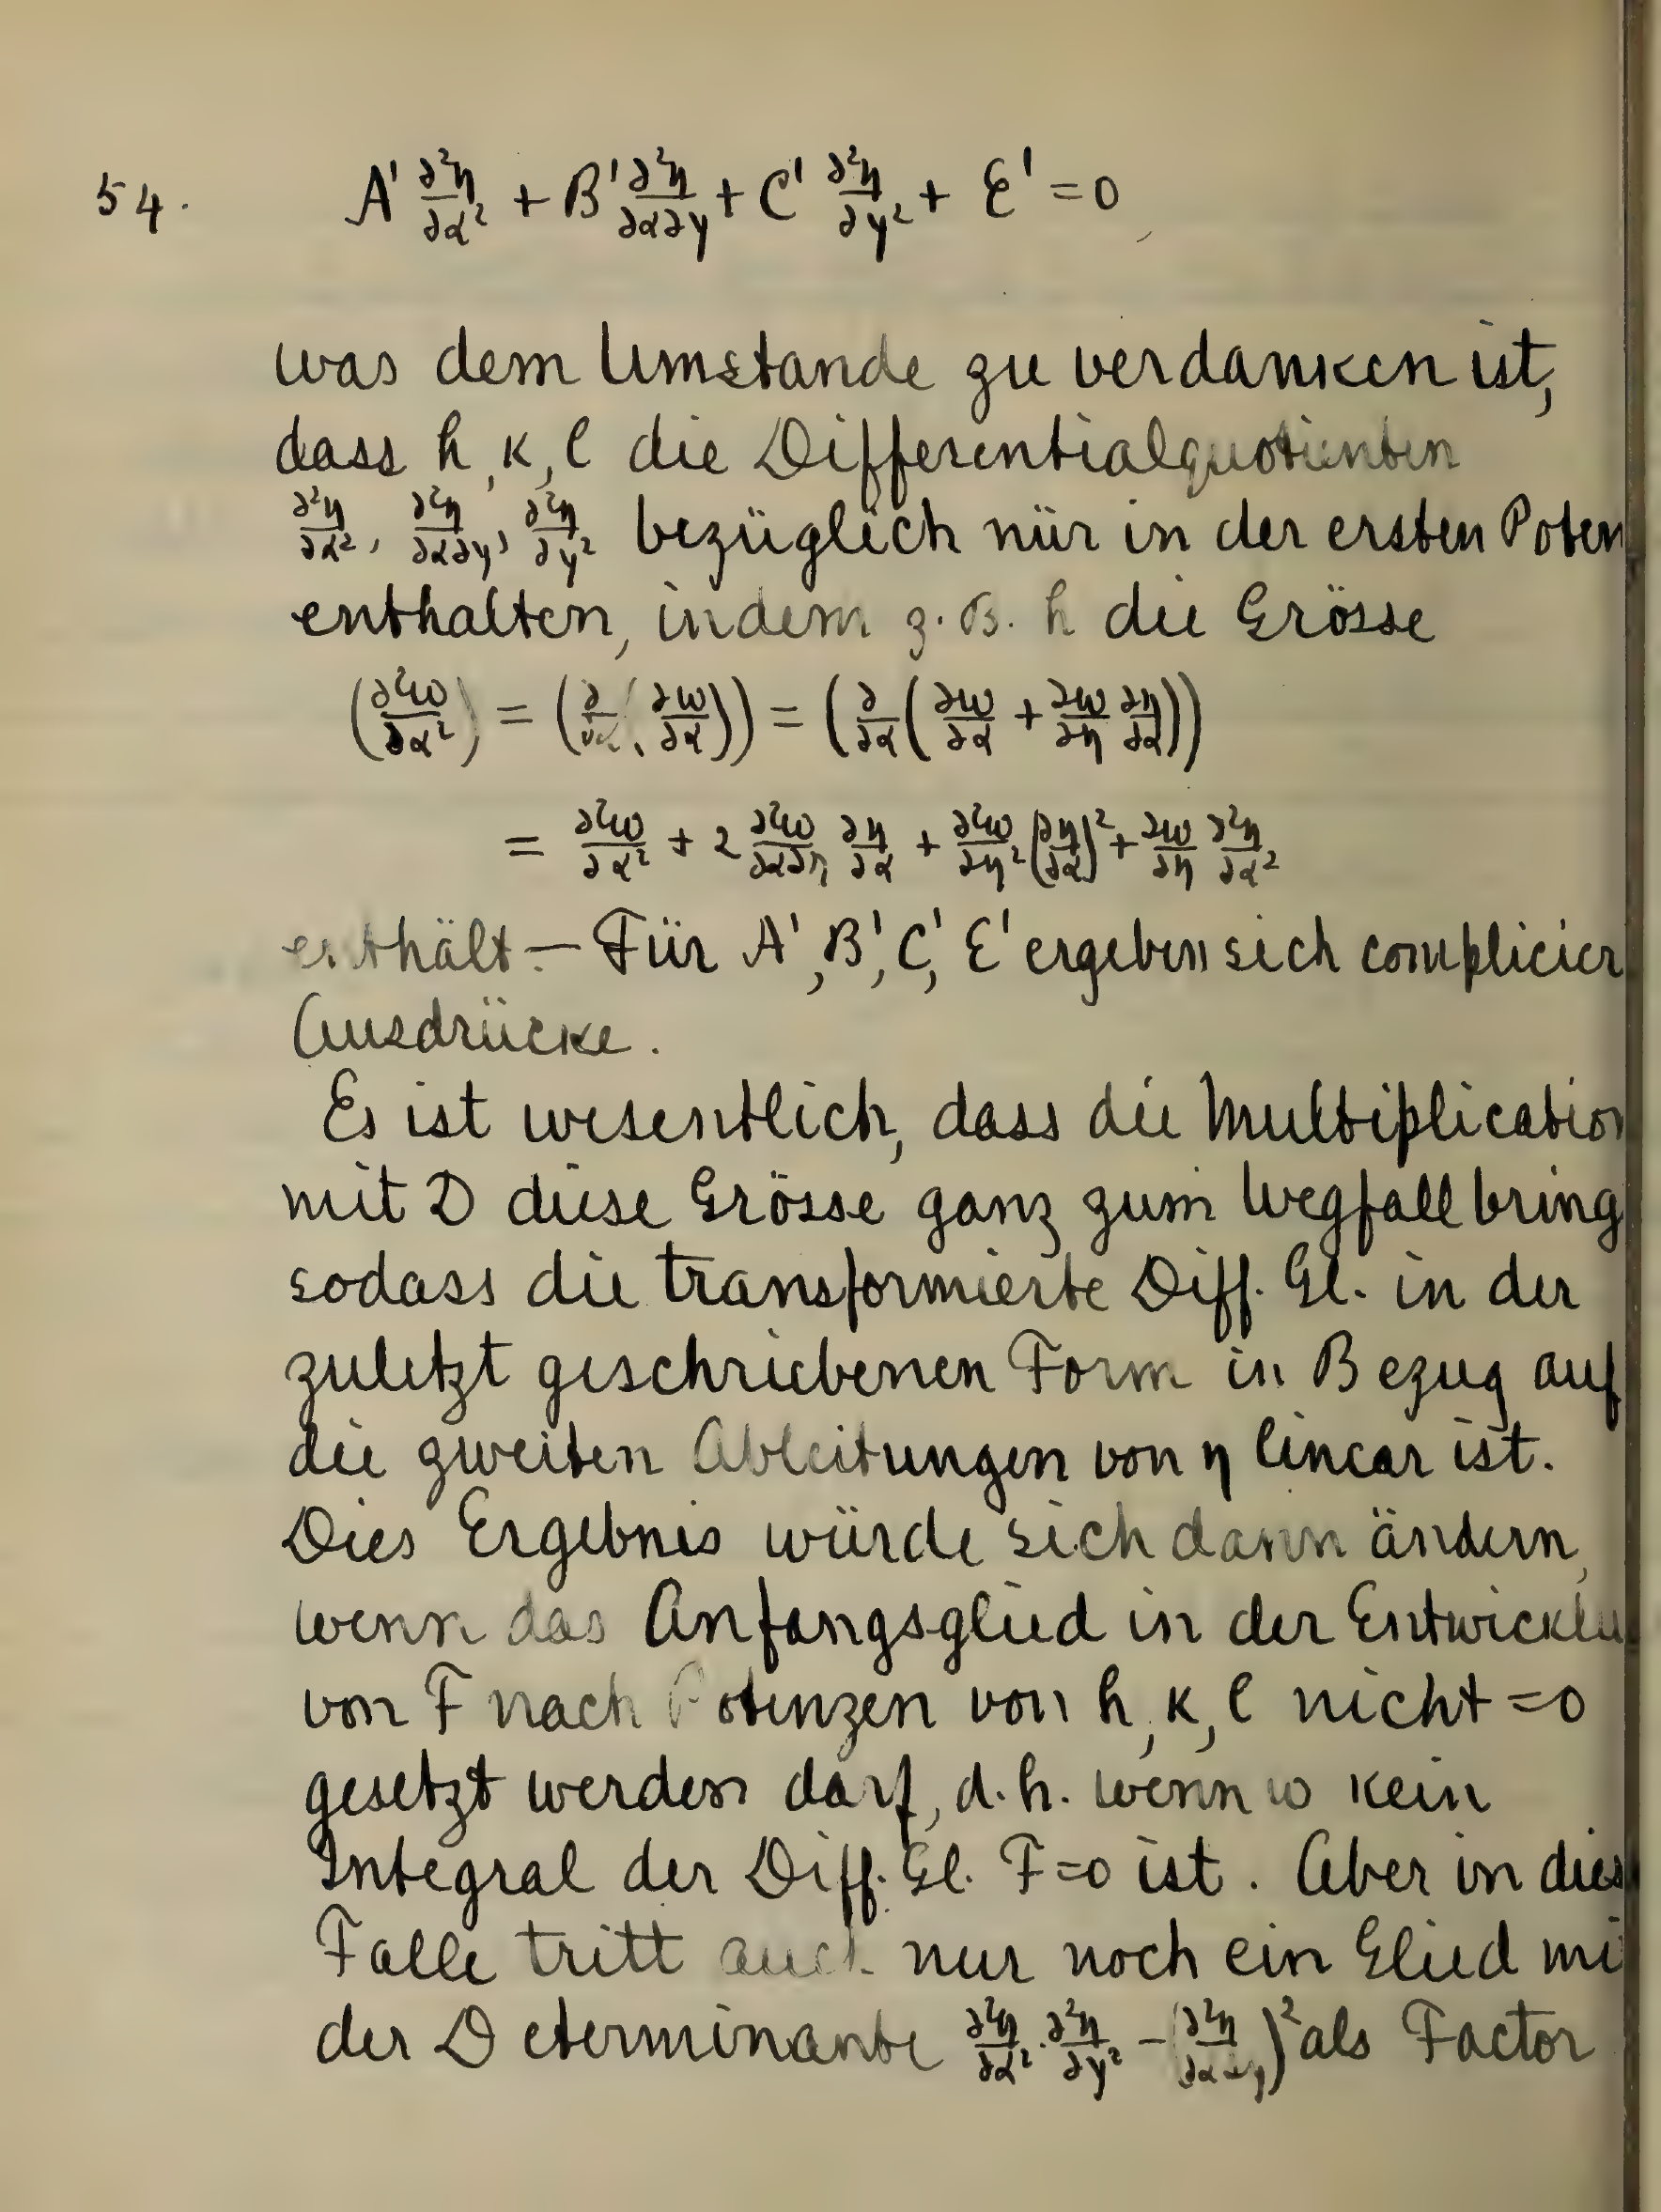 54. A' ∂²η/∂α² + B' ∂²η/∂α∂y + C' ∂²η/∂y² + E' = 0
was dem Umstande zu verdanken ist,
dass h, k, l die Differentialquotienten
∂²η/∂α², ∂²η/∂α∂y, ∂²η/∂y² bezüglich nür in der ersten Poten
enthalten, indem z. B. h die Grösse
(∂²ω/∂α²) = (∂/∂α (∂ω/∂α)) = (∂/∂α (∂ω/∂α + ∂ω/∂η ∂η/∂α))
= ∂²ω/∂α² + 2 ∂²ω/∂α∂η ∂η/∂α + ∂²ω/∂η² (∂η/∂α)² + ∂ω/∂η ∂²η/∂α²
enthält. — Für A', B', C', E' ergeben sich complicier
Ausdrücke.
Es ist wesentlich, dass die Multiplication
mit D diese Grösse ganz zum Wegfall bring
sodass die transformierte Diff. Gl. in der
zuletzt geschriebenen Form in Bezug auf
die zweiten Ableitungen von η linear ist.
Dies Ergebnis würde sich dann ändern,
wenn das Anfangsglied in der Entwicklu
von F nach Potenzen von h, k, l nicht = 0
gesetzt werden darf, d. h. wenn ω kein
Integral der Diff. Gl. F = 0 ist. Aber in dies
Falle tritt auch nur noch ein Glied mi
der Determinante ∂²η/∂α² · ∂²η/∂y² − (∂²η/∂α∂y)² als Factor